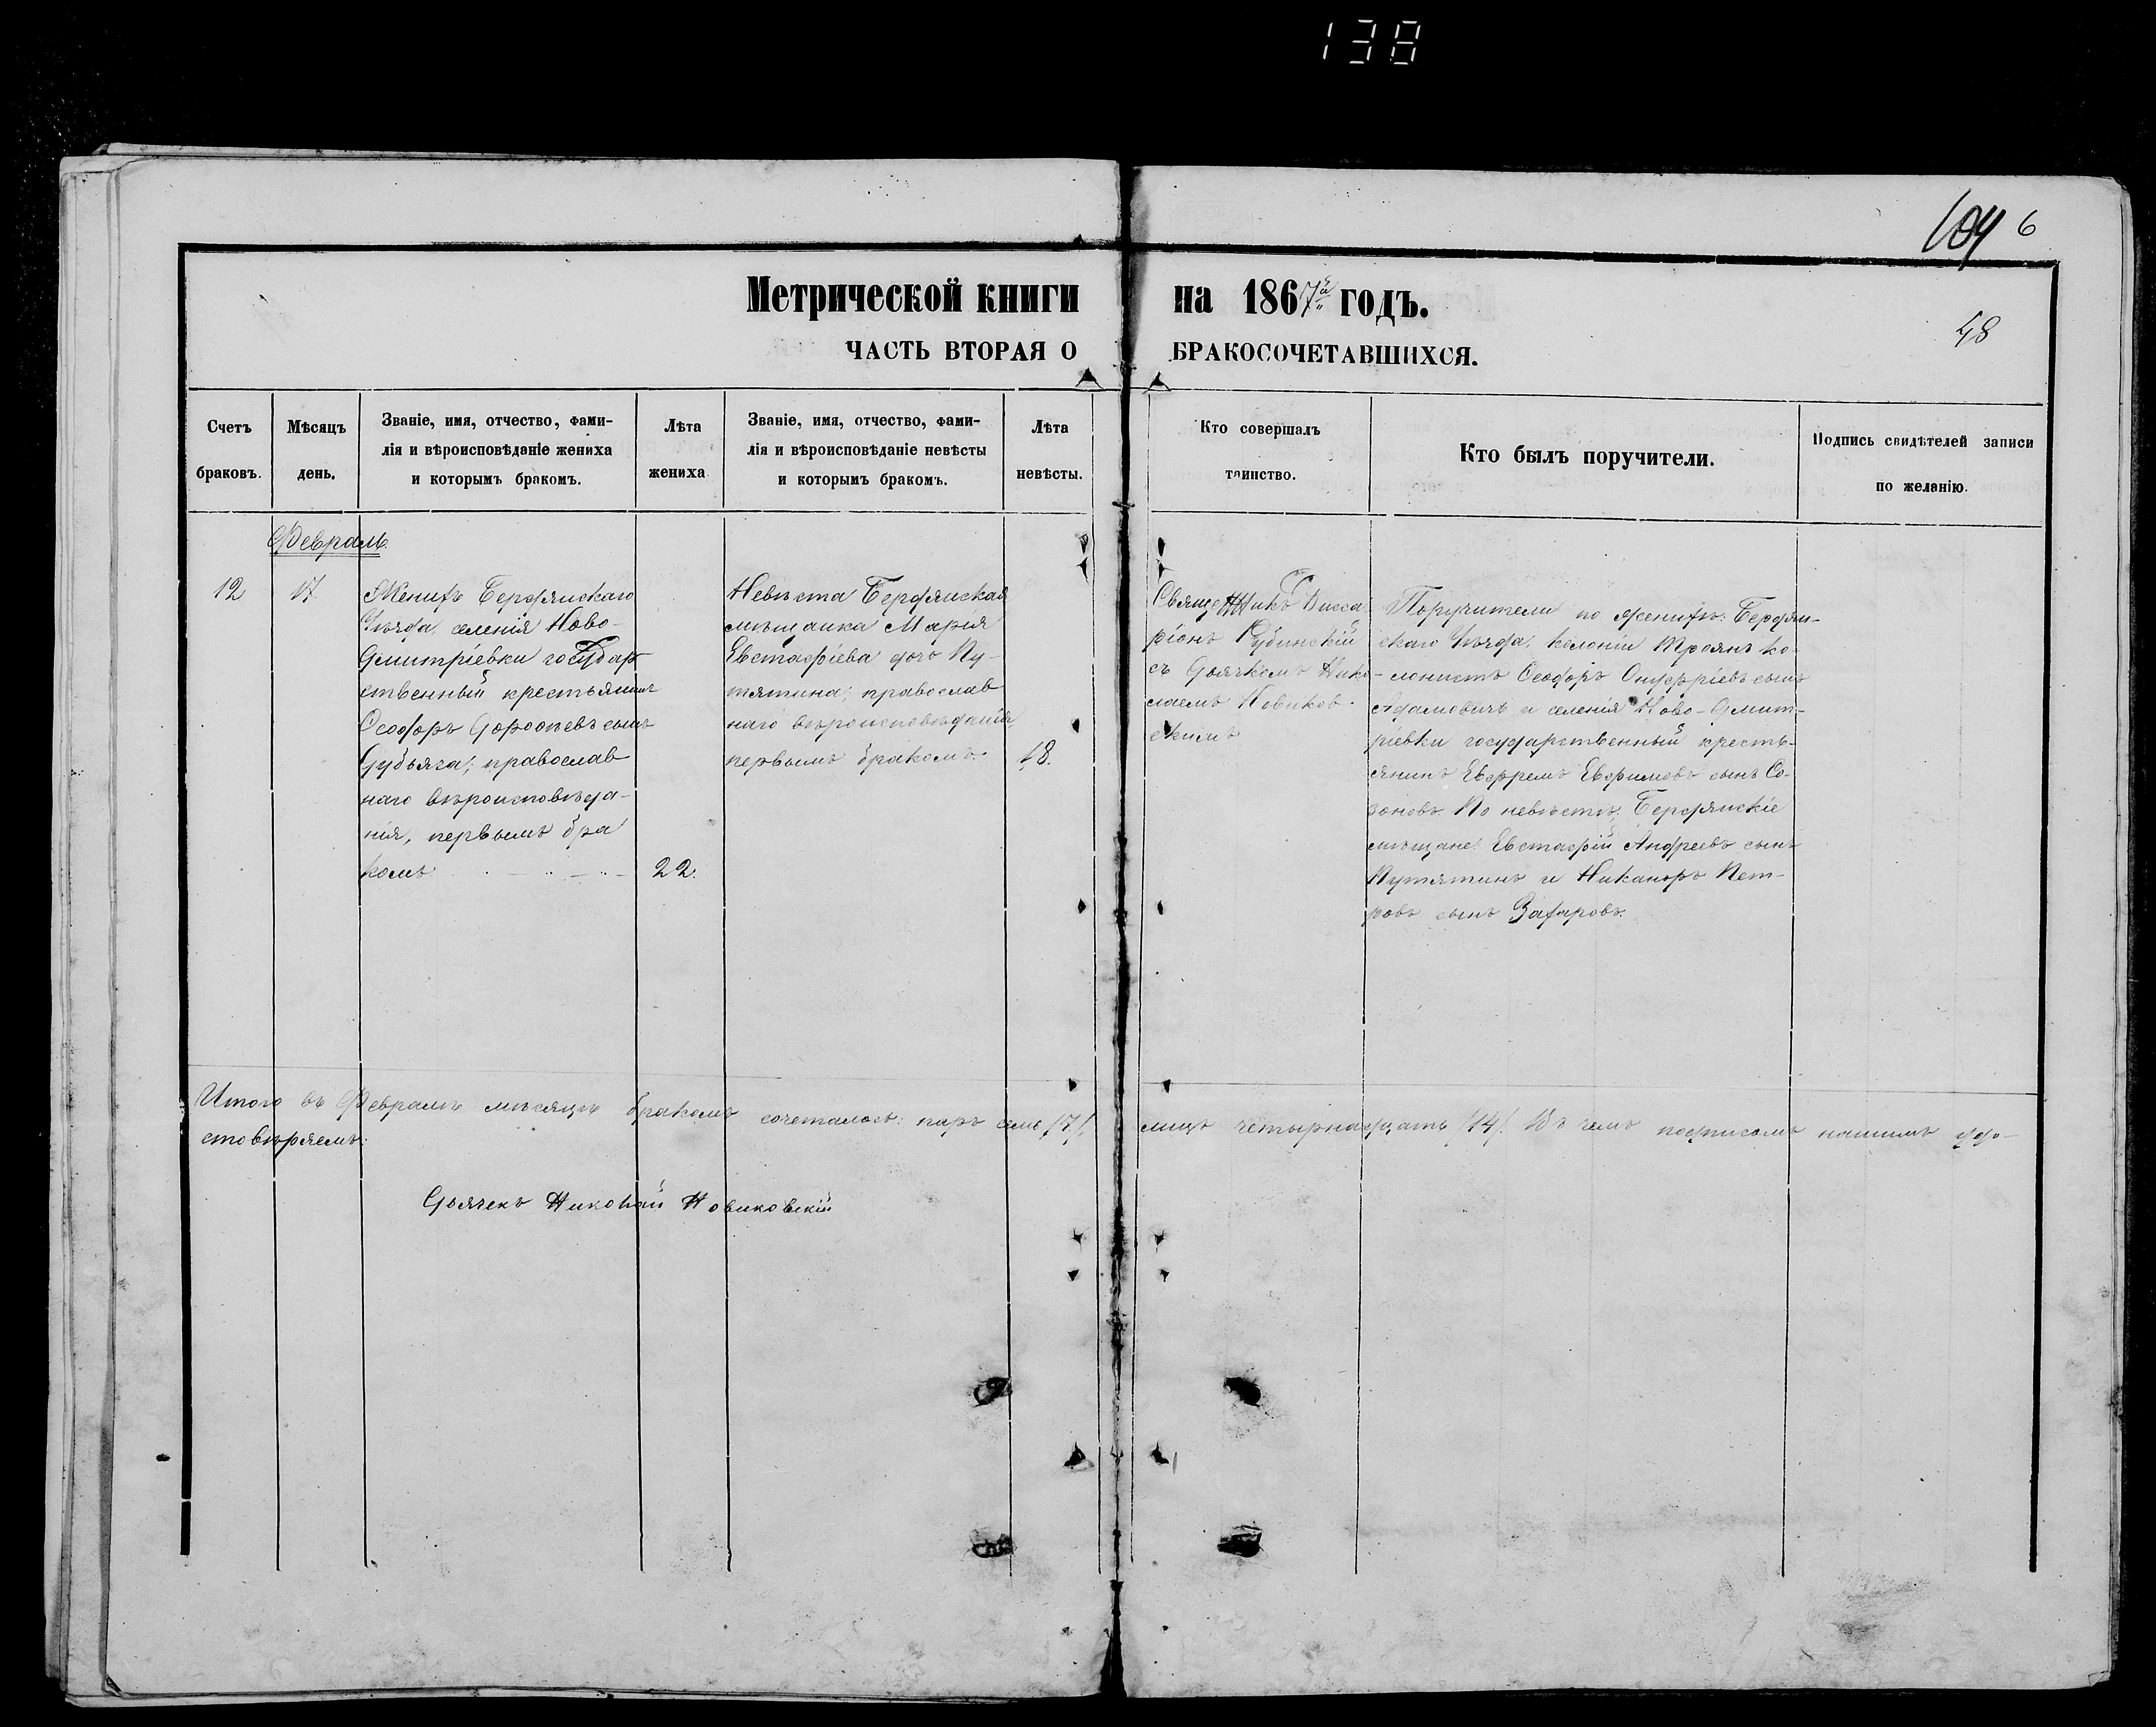 138
104 6
Метрической книги на 1867й годъ.
48
ЧАСТЬ ВТОРАЯ О БРАКОСОЧЕТАВШИХСЯ.
Счетъ браковъ.
Мѣсяцъ день.
Званіе, имя, отчество, фами-
лія и вѣроисповѣданіе жениха
и которымъ бракомъ.
Лѣта жениха
Званіе, имя, отчество, фами-
лія и вѣроисповѣданіе невѣсты
и которымъ бракомъ.
Лѣта невѣсты.
Кто совершалъ
таинство.
Кто былъ поручители.
Подпись свидѣтелей записи
по желанію.
Февраль.
12
17
Женихъ Бердянскаго
Уѣзда, селенія Ново-
Дмитріевки государ
ственный крестьянинъ
Ѳеодоръ Дороѳѣевъ сынъ
Дубяга; православ
наго вѣроисповѣда-
нія, первымъ бра
комъ
22.
Невѣста Бердянская
мѣщанка Марія
Евстафіева дочь Пу-
тятина; православ
наго вѣроисповѣданія
первымъ бракомъ.
18.
Священникъ Висса
ріонъ Рубинскій
съ Дьячкомъ Нико-
лаемъ Новиков-
скимъ
Поручители по женихѣ: Бердян-
скаго Уѣзда, колоніи Троянъ ко-
лонистъ Ѳеодоръ Онуфріевъ сынъ
Адамовичъ и селенія Ново-Дмит-
ріевки государственный кресть-
янинъ Ефремъ Евфимовъ сынъ Со-
зоновъ. По невѣстѣ: Бердянскіе
мѣщане: Евстафій Андреевъ сынъ
Путятинъ и Никаноръ Пет-
ровъ сынъ Захаровъ.
Итого въ Февралѣ мѣсяцѣ бракомъ сочеталось: паръ семь /7/, лицъ четырнадцать /14/. Въ чемъ подписомъ нашимъ удо-
стовѣряемъ:
Дьячекъ Николай Новиковскій